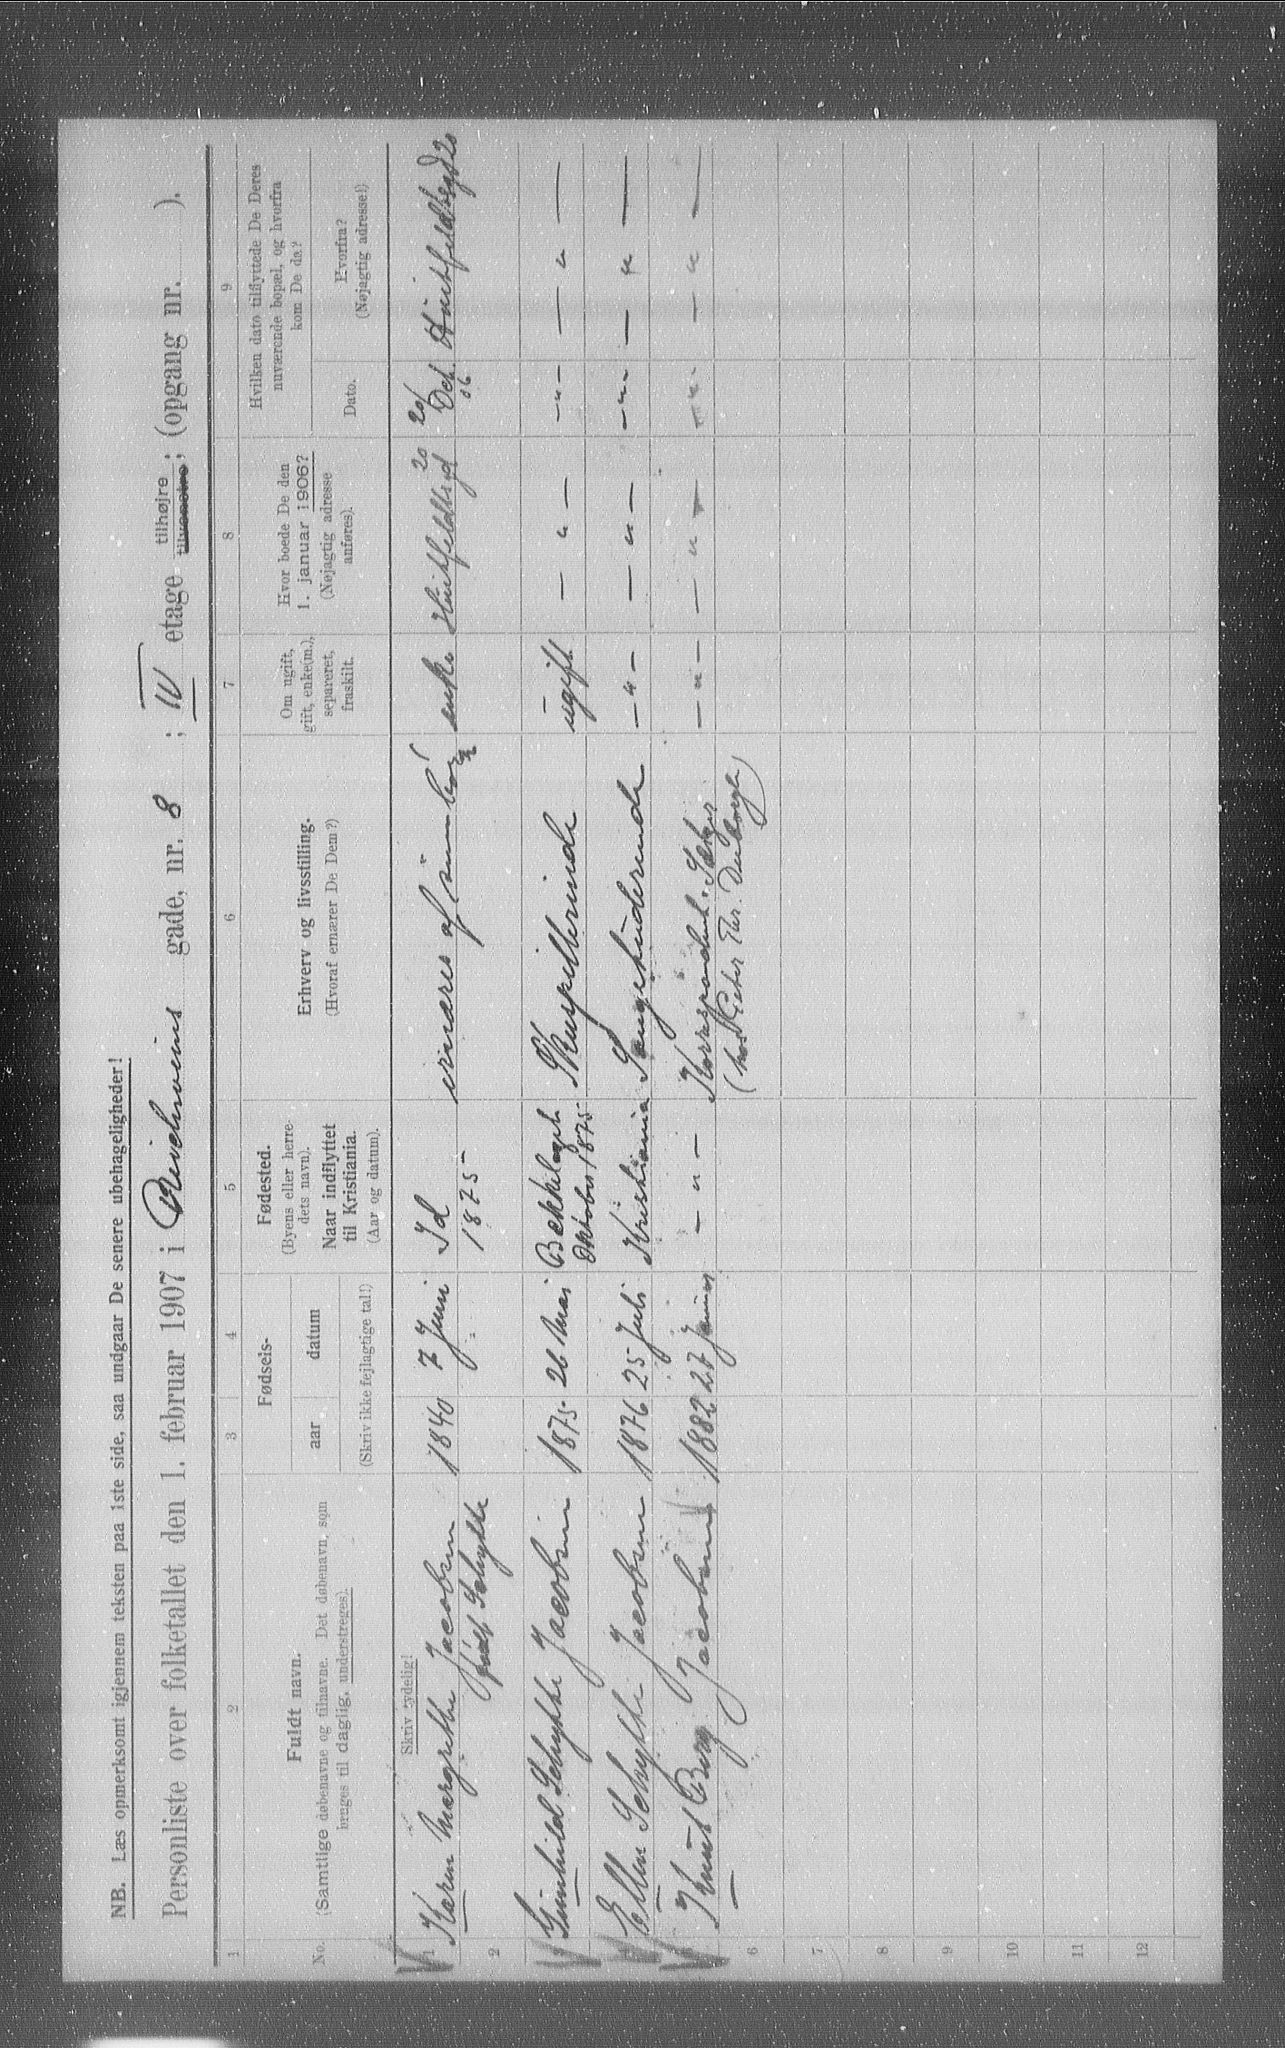 NB. Læs opmerksomt igjennem teksten paa 1ste side, saa undgaar De senere ubehageligheder!
Personliste over folketallet den 1. februar 1907 i gade, nr. 8; IV etage tilhøjre tilvenstre; (opgang nr. ).
1 2 3 4 5 6 7 8 9
No.
Fuldt navn.
(Samtlige døbenavne og tilnavne. Det døbenavn, som
bruges til daglig, understreges).
Fødsels-
aar datum
(Skriv ikke fejlagtige tal!)
Fødested.
(Byens eller herre-
dets navn).
Naar indflyttet
til Kristiania.
(Aar og datum).
Erhverv og livsstilling.
(Hvoraf ernærer De Dem?)
Om ugift,
gift, enke(m.),
separeret,
fraskilt.
Hvor boede De den
1. januar 1906?
(Nøjagtig adresse
anføres).
Hvilken dato tilflyttede De Deres
nuværende bopæl, og hvorfra
kom De da?
Dato.
Hvorfra?
(Nøjagtig adresse!)
Skriv tydelig!
1 Karen Margrethe Jacobsen 1840 7 Juni Id ernæres af sine børn enke Huitfeldtsgd 20 20/ Huitfeldtsgd 20
2 født Schytte 1875 06
3 Gunhild Schytte Jacobsen 1875 26 Mai Bækkelaget Skuespillerinde ugift — " — — " — — " —
Oktober 1875
4 Ellen Schytte Jacobsen 1876 25 Juli Kristiania Sangerinde — " — — " — — " — — " —
5 Knut Borg Jacobsen 1882 27 Januar — " — Korrespondent. — " — — " — — " — — " —
(hos Peter Thr. Duborgh)
6
7
8
9
10
11
12